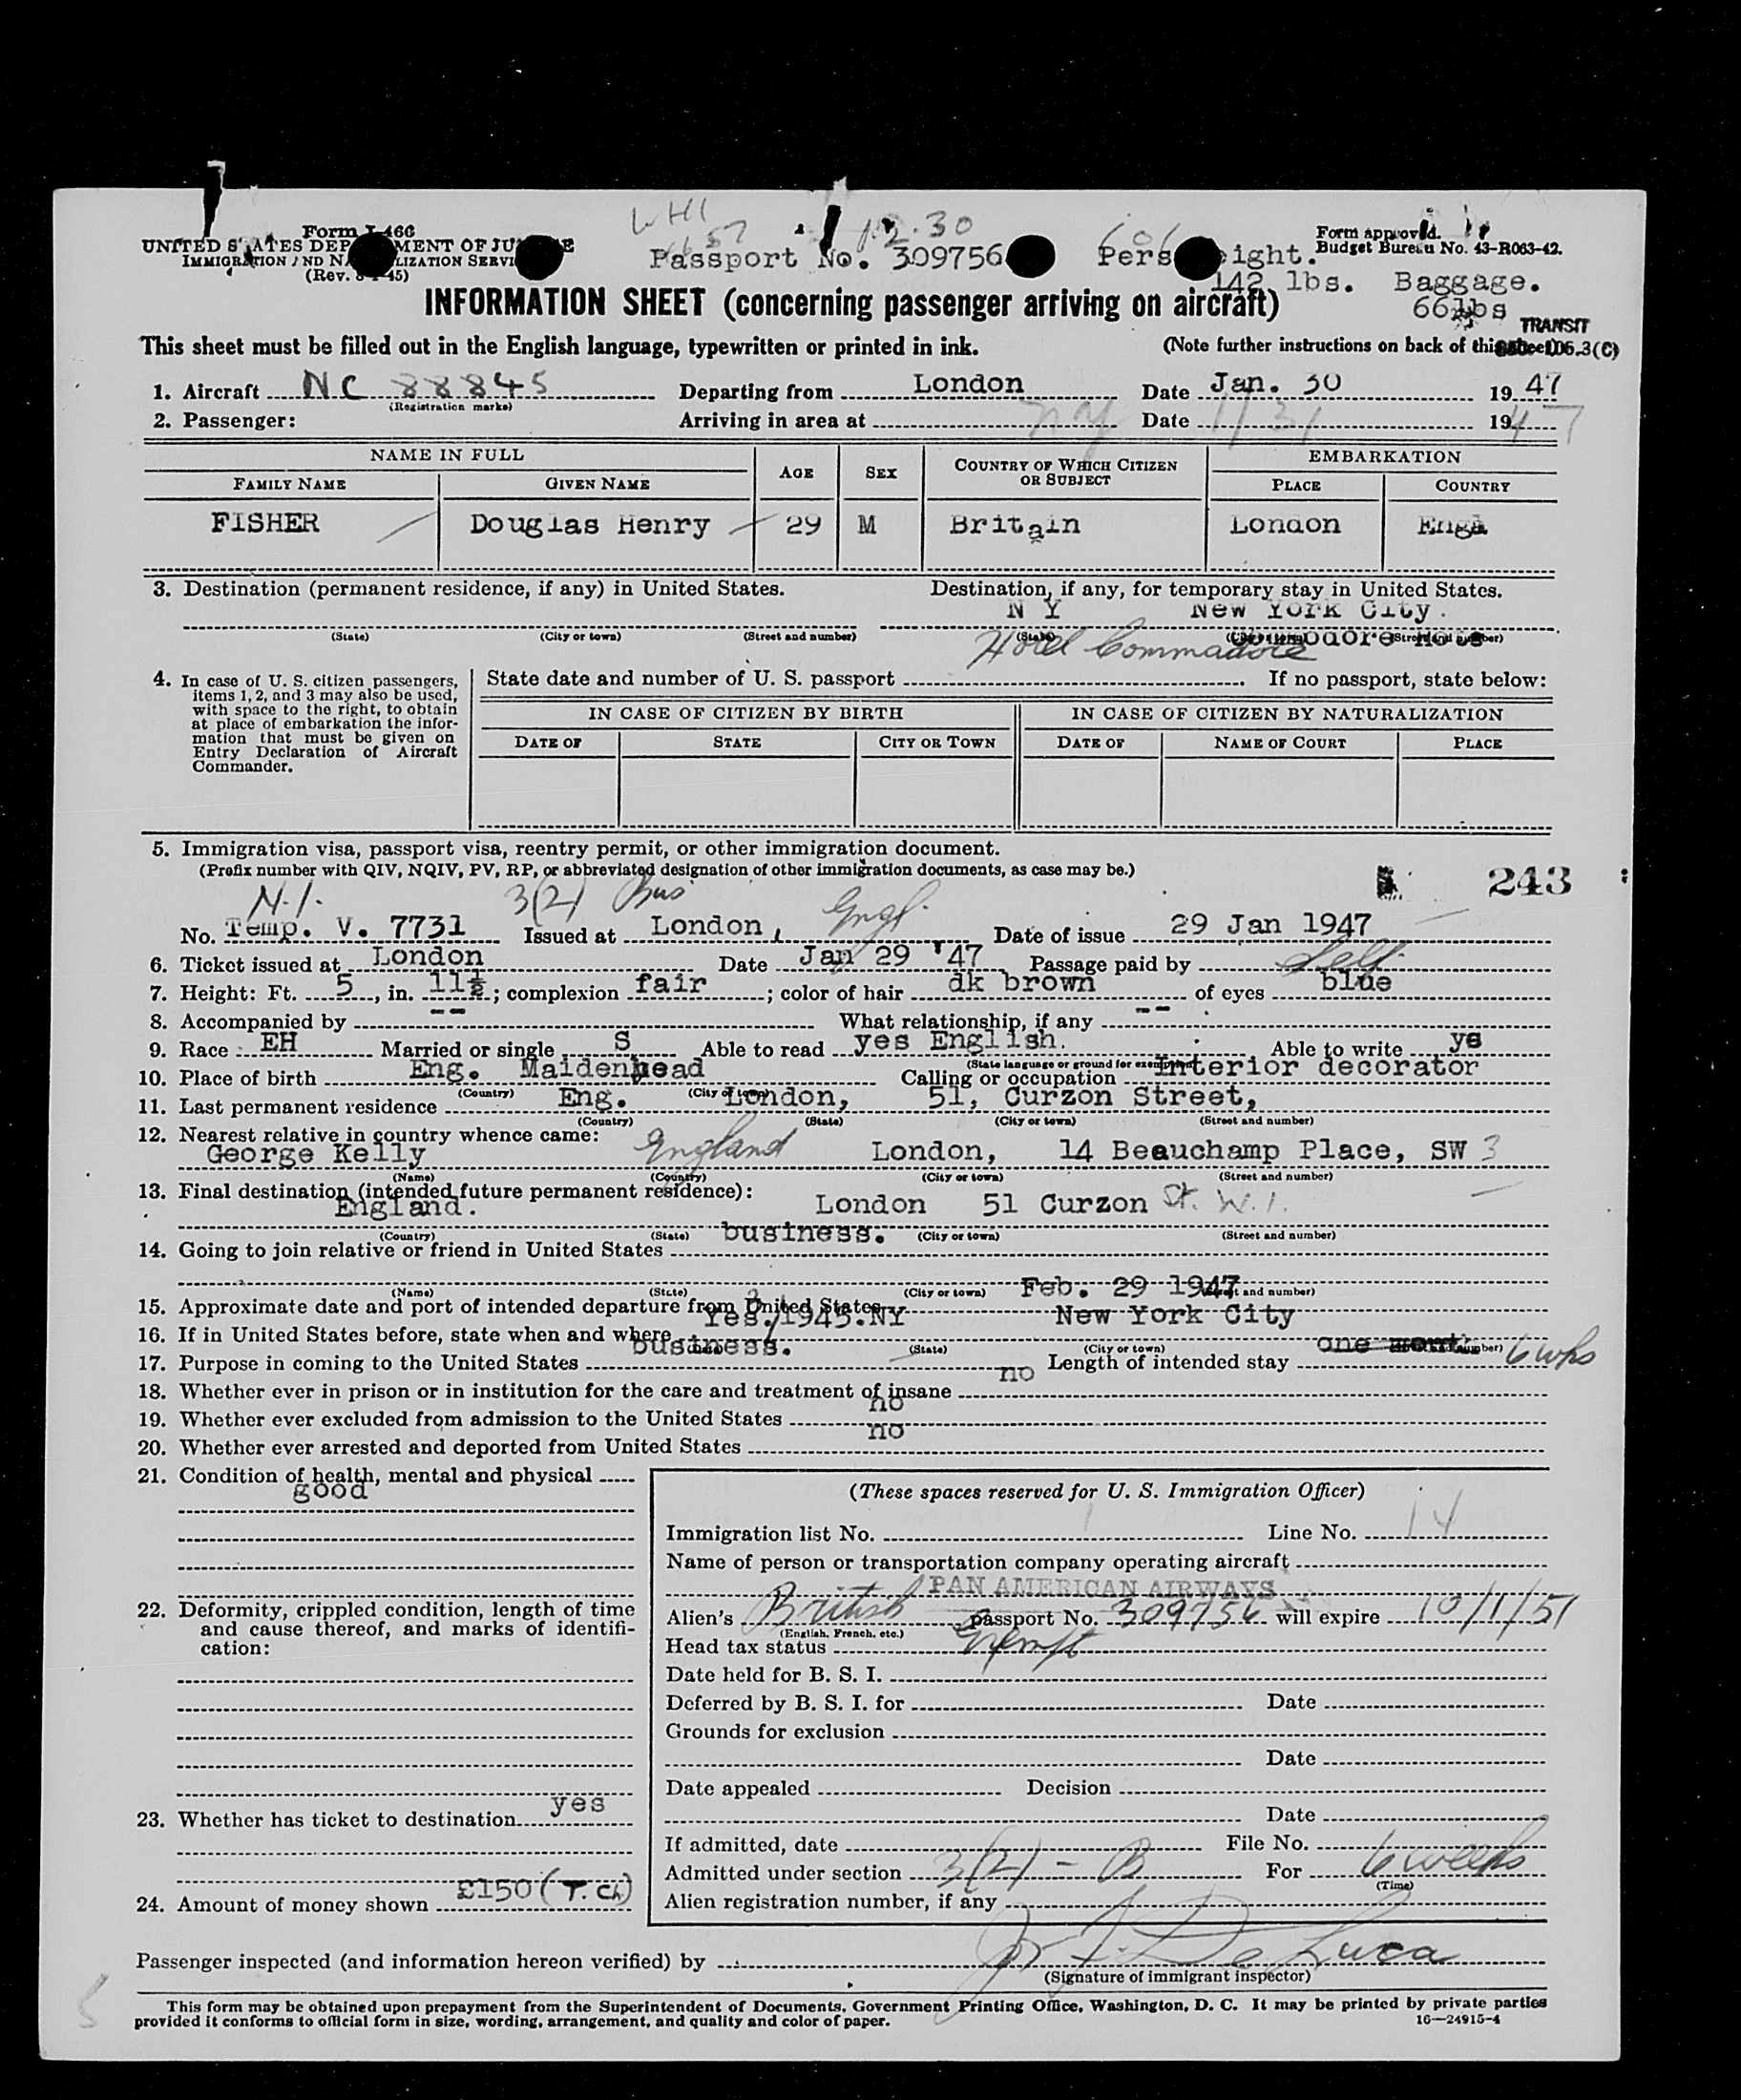 WHI
Form I-466
UNITED STATES DEPARTMENT OF JUSTICE
IMMIGRATION AND NATURALIZATION SERVICE
(Rev. 8-1-45)
12.30
Passport No. 309756
Pers eight.
142 lbs. Baggage.
66 lbs
Form approved.
Budget Bureau No. 43-R063-42.
INFORMATION SHEET (concerning passenger arriving on aircraft)
TRANSIT
This sheet must be filled out in the English language, typewritten or printed in ink.
(Note further instructions on back of this sheet) 106.3(C)
1. Aircraft NC 88845 Departing from London Date Jan. 30 1947
(Registration marks)
2. Passenger: Arriving in area at NY Date 1/31 1947
NAME IN FULL
FAMILY NAME GIVEN NAME AGE SEX COUNTRY OF WHICH CITIZEN OR SUBJECT EMBARKATION PLACE COUNTRY
FISHER Douglas Henry 29 M Britain London Engl
3. Destination (permanent residence, if any) in United States. Destination, if any, for temporary stay in United States.
N Y New York City.
(State) (City or town) (Street and number) (State) (Street and number)
Hotel Commadore
4. In case of U. S. citizen passengers, items 1, 2, and 3 may also be used, with space to the right, to obtain at place of embarkation the information that must be given on Entry Declaration of Aircraft Commander.
State date and number of U. S. passport . If no passport, state below:
IN CASE OF CITIZEN BY BIRTH IN CASE OF CITIZEN BY NATURALIZATION
DATE OF STATE CITY OR TOWN DATE OF NAME OF COURT PLACE
5. Immigration visa, passport visa, reentry permit, or other immigration document.
(Prefix number with QIV, NQIV, PV, RP, or abbreviated designation of other immigration documents, as case may be.)
243
N.I. 3(2) Bus Engl.
No. Temp. V. 7731 Issued at London, Date of issue 29 Jan 1947
6. Ticket issued at London Date Jan 29 '47 Passage paid by Self
7. Height: Ft. 5, in. 11½; complexion fair; color of hair dk brown of eyes blue
8. Accompanied by -- What relationship, if any --
9. Race EH Married or single S Able to read yes English. Able to write ye
(State language or ground for exemption)
10. Place of birth Eng. Maidenhead Calling or occupation Interior decorator
(Country) (City or town)
11. Last permanent residence Eng. London, 51, Curzon Street,
(Country) (State) (City or town) (Street and number)
12. Nearest relative in country whence came:
George Kelly England London, 14 Beauchamp Place, SW 3
(Name) (Country) (City or town) (Street and number)
13. Final destination (intended future permanent residence):
England. London 51 Curzon St. W.1.
(Country) (State) (City or town) (Street and number)
14. Going to join relative or friend in United States business.
(Name) (State) (City or town) (Street and number)
15. Approximate date and port of intended departure from United States Feb. 29 1947 New York City
16. If in United States before, state when and where Yes. 1945. NY
(State) (City or town)
17. Purpose in coming to the United States business. Length of intended stay one month 6 wks
18. Whether ever in prison or in institution for the care and treatment of insane no
19. Whether ever excluded from admission to the United States no
20. Whether ever arrested and deported from United States no
21. Condition of health, mental and physical
good
22. Deformity, crippled condition, length of time and cause thereof, and marks of identification:
23. Whether has ticket to destination yes
24. Amount of money shown £150 (T. Ch)
(These spaces reserved for U. S. Immigration Officer)
Immigration list No. Line No. 14
Name of person or transportation company operating aircraft
PAN AMERICAN AIRWAYS
Alien's British passport No. 309756 will expire 10/1/51
(English, French, etc.)
Head tax status Exempt
Date held for B. S. I.
Deferred by B. S. I. for Date
Grounds for exclusion
Date
Date appealed Decision
Date
If admitted, date File No.
Admitted under section 3(2) - B For 6 weeks
(Time)
Alien registration number, if any
Passenger inspected (and information hereon verified) by De Luca
(Signature of immigrant inspector)
This form may be obtained upon prepayment from the Superintendent of Documents, Government Printing Office, Washington, D. C. It may be printed by private parties
provided it conforms to official form in size, wording, arrangement, and quality and color of paper.
16—24915-4